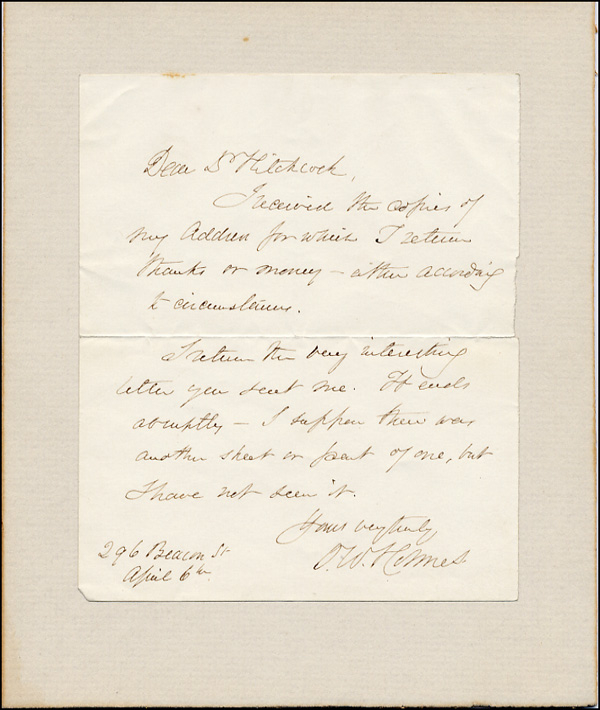 Dear Dr Hitchcock,
I received the copies of
my Address for which I return
thanks or money – either according
to circumstances.
I return the very interesting
letter you sent me. It ends
abruptly – I suppose there was
another sheet or part of one, but
I have not seen it.
Yours very truly
O. W. Holmes
296 Beacon St
April 6th